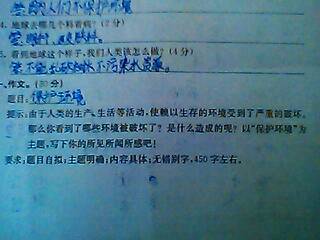 答:因为人们不保护环境
4. 地球去哪几个科看病?(2分)
答:眼科、皮肤科。
5. 看到地球这个样子,我们人类该怎么做?(4分)
答:不
不污染水资源。
一、作文。(30分)
题目:保护环境
提示:由于人类的生产、生活等活动,使赖以生存的环境受到了严重的破坏。
那么你看到了哪些环境被破坏了?是什么造成的呢?以“保护环境”为
主题,写下你的所见所闻所感吧!
要求:题目自拟;主题明确;内容具体;无错别字,450字左右。